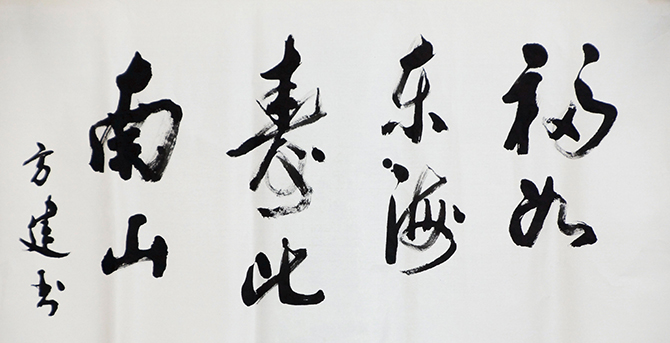 福如
东海
寿此
南山
方建书